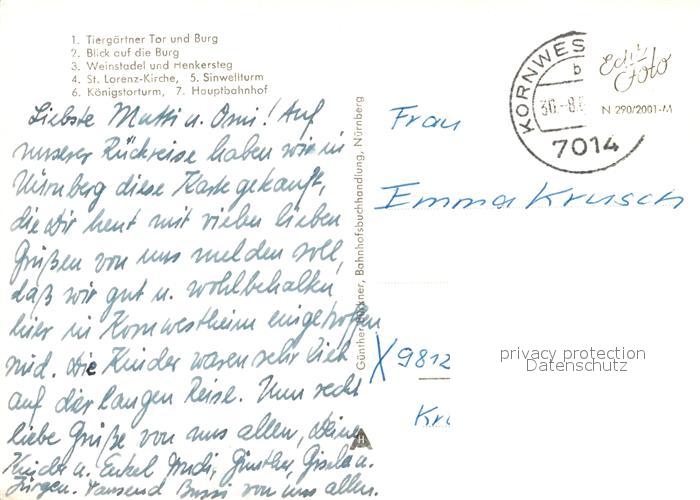 1. Tiergärtner Tor und Burg
2. Blick auf die Burg
3. Weinstadel und Henkersteg
4. St. Lorenz-Kirche, 5. Sinwellturm
6. Königstorturm, 7. Hauptbahnhof
Liebste Mutti u. Omi! Auf
unserer Rückreise haben wir in
Nürnberg diese Karte gekauft,
die Dir heut mit vielen lieben
Grüßen von uns melden soll,
daß wir gut u. wohlbehalten
hier in Kornwestheim eingetroffen
sind. Die Kinder waren sehr lieb
auf der langen Reise. Nun recht
liebe Grüße von uns allen, Deine
Kinder u. Enkel Günther, Gisela u.
Jürgen. Tausend Bussi von uns allen.
Günther Bückner, Bahnhofsbuchhandlung, Nürnberg
KORNWES
b
30.-8.
7014
Foto
N 290/2001-M
Frau
Emma Krusch
X 9812
Kr
privacy protection
Datenschutz
H